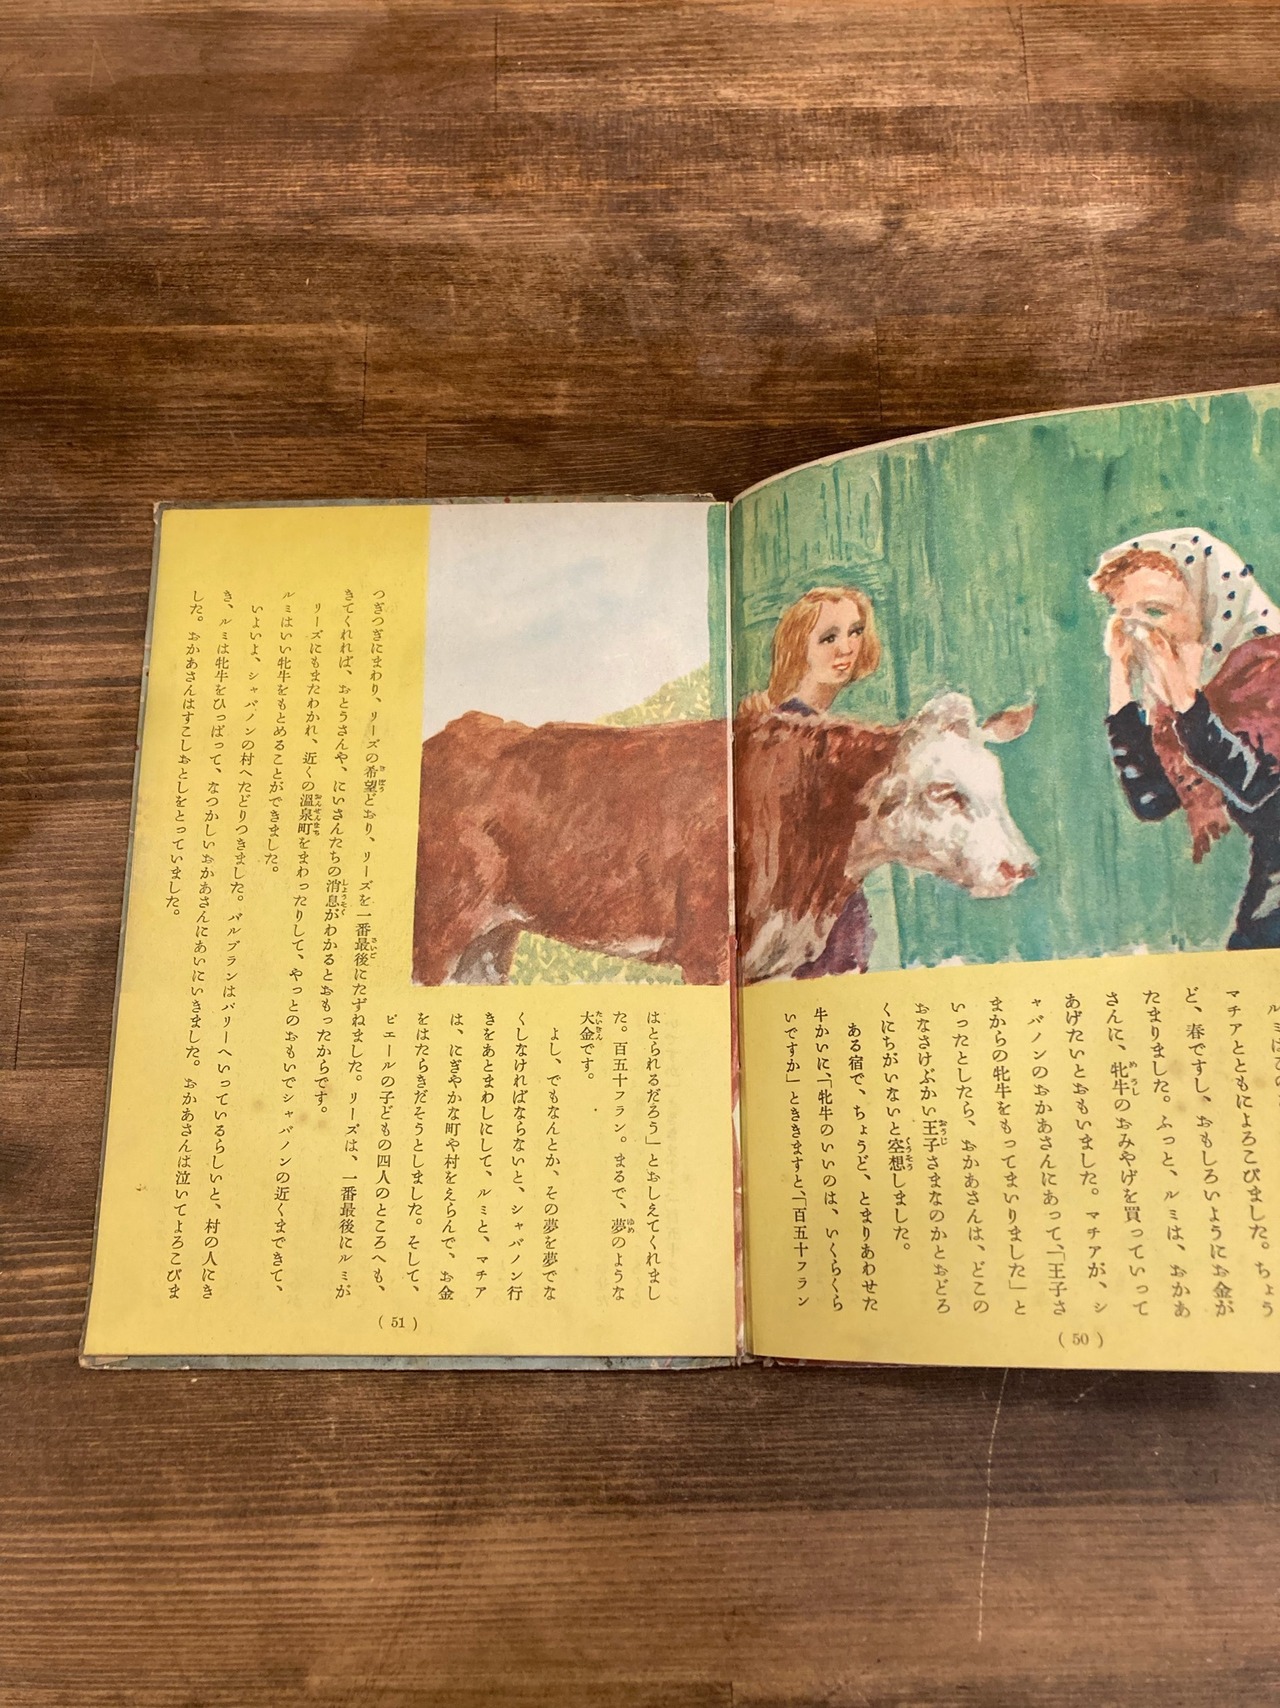 マチアとともによろこびました。ちょう
ど、春ですし、おもしろいようにお金が
たまりました。ふっと、ルミは、おかあ
さんに、牝牛のおみやげを買っていって
あげたいとおもいました。マチアが、シ
ャバノンのおかあさんにあって、「王子さ
まからの牝牛をもってまいりました」と
いったとしたら、おかあさんは、どこの
おなさけぶかい王子さまなのかとおどろ
くにちがいないと空想しました。
ある宿で、ちょうど、とまりあわせた
牛かいに、「牝牛のいいのは、いくらくら
いですか」とききますと、「百五十フラン
(50)
はとられるだろう」とおしえてくれまし
た。百五十フラン。まるで、夢のような
大金です。
よし、でもなんとか、その夢を夢でな
くしなければならないと、シャバノン行
きをあとまわしにして、ルミと、マチア
は、にぎやかな町や村をえらんで、お金
をはたらきだそうとしました。そして、
ピエールの子どもの四人のところへも、
つぎつぎにまわり、リーズの希望どおり、リーズを一番最後にたずねました。リーズは、一番最後にルミが
きてくれれば、おとうさんや、にいさんたちの消息がわかるとおもったからです。
リーズにもまたわかれ、近くの溫泉町をまわったりして、やっとのおもいでシャバノンの近くまできて、
ルミはいい牝牛をもとめることができました。
いよいよ、シャバノンの村へたどりつきました。バルブランはパリーへいっているらしいと、村の人にき
き、ルミは牝牛をひっぱって、なつかしいおかあさんにあいにいきました。おかあさんは泣いてよろこびま
した。おかあさんはすこしおとしをとっていました。
(51)